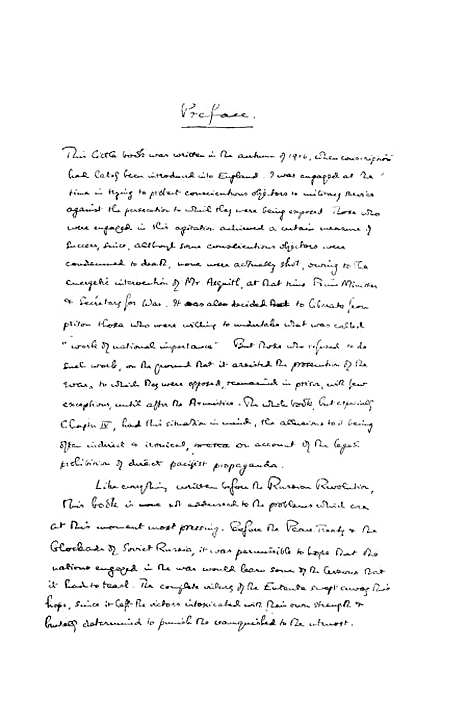 Preface.
This little book was written in the autumn of 1916, when conscription
had lately been introduced into England. I was engaged at the
time in trying to protect conscientious objectors to military service
against the persecution to which they were being exposed. Those who
were engaged in this agitation achieved a certain measure of
success, since, although some conscientious objectors were
condemned to death, none were actually shot, owing to the
energetic intervention of Mr Asquith, at that time Prime Minister
& Secretary for War. It was also decided to liberate from
prison those who were willing to undertake what was called
"work of national importance". But those who refused to do
such work, on the ground that it assisted the prosecution of the
war, to which they were opposed, remained in prison, with few
exceptions, until after the Armistice. The whole book, but especially
Chapter IV, had this situation in mind, the allusions to it being
often indirect & ironical, on account of the legal
prohibition of direct pacifist propaganda.
Like everything written before the Russian Revolution,
this book is now not addressed to the problems which are
at this moment most pressing. Before the Peace Treaty & the
blockade of Soviet Russia, it was permissible to hope that the
nations engaged in the war would learn some of the lessons that
it had to teach. The complete victory of the Entente swept away this
hope, since it left the victors intoxicated with their own strength &
determined to punish the vanquished to the utmost.